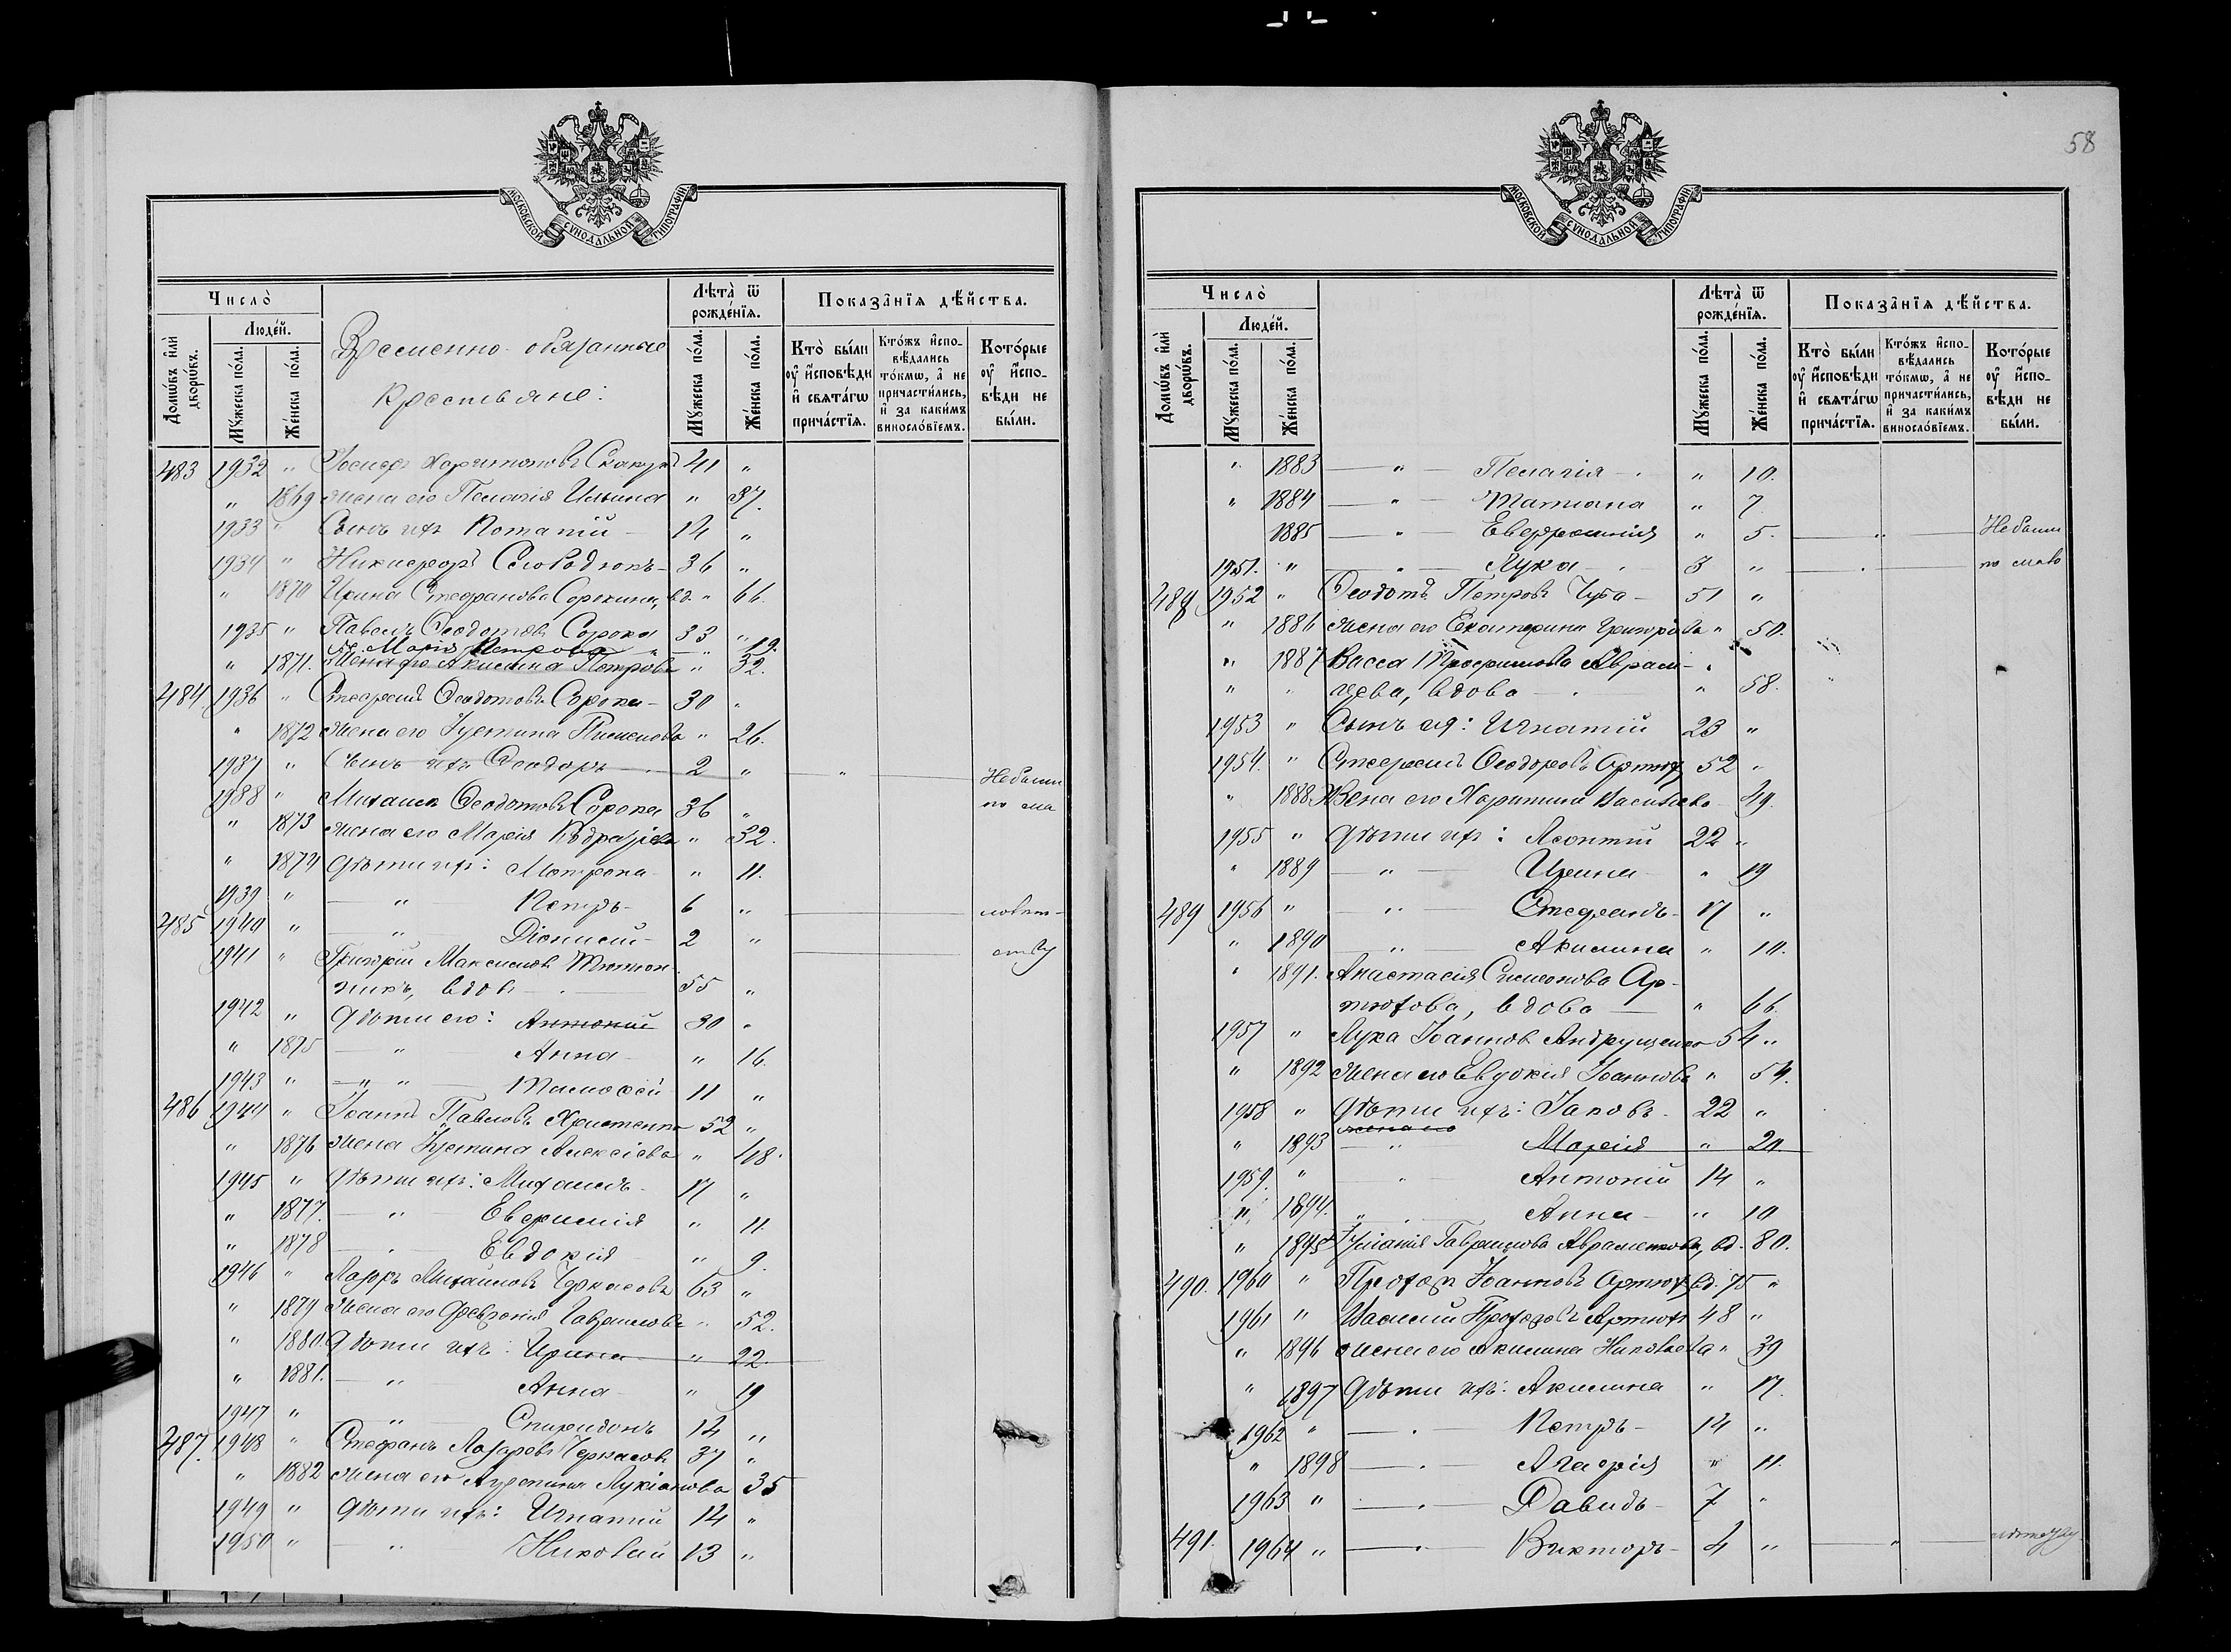 58
МОСКОВСКОЙ СѴНОДАЛЬНОЙ ТИПОГРАФІИ
Число̀
Людéй.
Домѡ́въ и҆лѝ дворѡ́въ.
Мꙋ́жеска по́ла.
Же́нска по́ла.
Временно-обязанные
Крестьяне:
Лѣта̀ ѿ рожде́нїѧ.
Мꙋ́жеска по́ла.
Же́нска по́ла.
Показа̑нїѧ дѣ́йства.
Кто̀ бы́ли оу҆ и҆сповѣди и҆ свѧта́гѡ прича́стїѧ.
Кто́жъ и҆спо-вѣдались то́кмѡ, а҆ не причасти́лись, и҆ за каки́мъ винословїемъ.
Кото́рые оу҆ и҆спо-вѣди не бы́ли.
483 1932 " Іосифъ Харитоновъ 41 "
" 1869 Жена его Пелагія Ильина " 37.
1933 " Сынъ ихъ Потапій 14 "
1934 " Никифоръ 36 "
" 1870 Ирина Стефанова Сорокина, вд. " 66.
1935 " Павелъ Ѳеодотовъ Сорока 33 "
Марія Петрова " 19.
" 1871. Жена его Акилина Петрова " 32.
484. 1936 " Стефанъ Ѳеодотовъ Сорока 30 "
" 1872 Жена его Іустина " 26.
1937 " Сынъ ихъ Ѳеодоръ 2 " " Небыли
1938 " Михаилъ Ѳеодотовъ Сорока 36 " по ма
" 1873 Жена его Марія " 32.
" 1874 Дѣти ихъ: Мотрона " 11.
1939 " " Петръ 6 "
485 1940 " " Діонисій 2 "
1941 " Григорій Максимовъ Тютюн
никъ, вдов. 55 "
1942 " Дѣти его: Антоній 30 "
" 1875 " Анна " 16.
1943 " " Тимоѳей 11 "
486 1944 " Іоаннъ Павловъ Христенко 52 "
" 1876 Жена Іустина Алексіева " 48.
1945 " Дѣти ихъ: Михаилъ 17 "
" 1877. " Евфимія " 11.
" 1878 " Евдокія " 9.
1946 " Лазарь Михайловъ Черкасовъ 63 "
" 1879 Жена его Гавриилова " 52.
" 1880. Дѣти ихъ: Ирина " 22.
" 1881. " Анна " 19
1947 " " Спиридонъ 14 "
487. 1948 " Стефанъ Лазаревъ Черкасовъ 37 "
" 1882 Жена его Лукіанова 35
1949 " Дѣти ихъ: Игнатій 14 "
1950 " " Николай 13 "
МОСКОВСКОЙ СѴНОДАЛЬНОЙ ТИПОГРАФІИ
Число̀
Людéй.
Домѡ́въ и҆лѝ дворѡ́въ.
Мꙋ́жеска по́ла.
Же́нска по́ла.
Лѣта̀ ѿ рожде́нїѧ.
Мꙋ́жеска по́ла.
Же́нска по́ла.
Показа̑нїѧ дѣ́йства.
Кто̀ бы́ли оу҆ и҆сповѣди и҆ свѧта́гѡ прича́стїѧ.
Кто́жъ и҆спо-вѣдались то́кмѡ, а҆ не причасти́лись, и҆ за каки́мъ винословїемъ.
Кото́рые оу҆ и҆спо-вѣди не бы́ли.
" 1883 " Пелагія " 10.
" 1884 " Татіана " 7
1885 " Евфросинія " 5. " Небыли
1951. " " Лука 3 " по мало
488 1952 " Ѳеодотъ Петровъ Чуба 51 "
" 1886 Жена его Екатерина Григорьева " 50.
" 1887 Васса Аврам-
" " цева, вдова " 58.
1953 " Сынъ ея: Игнатій 23 "
1954. " Стефанъ Ѳеодоровъ Артюх 52 "
" 1888. Жена его Харитина Василіева 49.
1955 " Дѣти ихъ: Леонтій 22 "
" 1889 " Ирина " 19
489 1956 " " Стефанъ 17 "
" 1890 " Акилина " 10.
" 1891. Анастасія Симеонова Ар-
тюхова, вдова " 66.
1957 " Лука Іоанновъ Андрущенко 54 "
" 1892 Жена его Евдокія Іоаннова " 54.
1958 " Дѣти ихъ: Іаковъ 22 "
жена его
" 1893 " Марія " 20.
1959. " " Антоній 14 "
" 1894. " Анна " 10
" 1895 Іуліанія Гавриилова Авраменкова, вд. 80.
490. 1960 " Прохоръ Іоанновъ Артюх вд. 75 "
1961 " Василій Прохоровъ Артюхъ 48 "
" 1896 Жена его Акилина Николаева " 39
" 1897 Дѣти ихъ: Акилина " 17.
1962 " " Петръ 14 "
" 1898 " Агафія " 11.
1963 " " Давидъ 7 "
491. 1964 " " Викторъ 4 " "